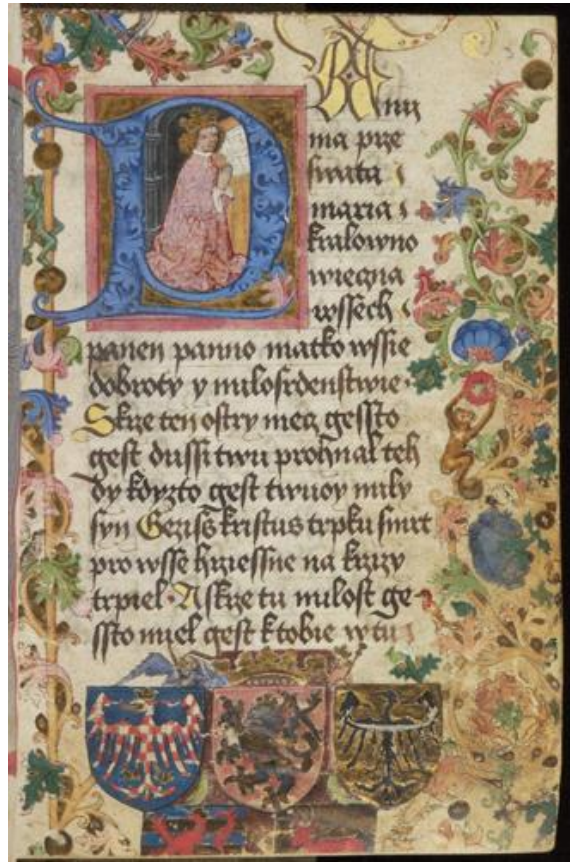 PAny
ma prze
swata
maria
kralowno
wieczna
wssech
panen panno matko wssie
dobroty y milosrdenstwie.
Skrze ten ostry mecz gessto
gest dussi twu prohnal teh
dy kdyzto gest twuoy mily
syn kristus trpku smrt
pro wsse hrziessne na krzizy
trpiel. A skrze tu milost ge-
ssto miel gest k tobie w tu